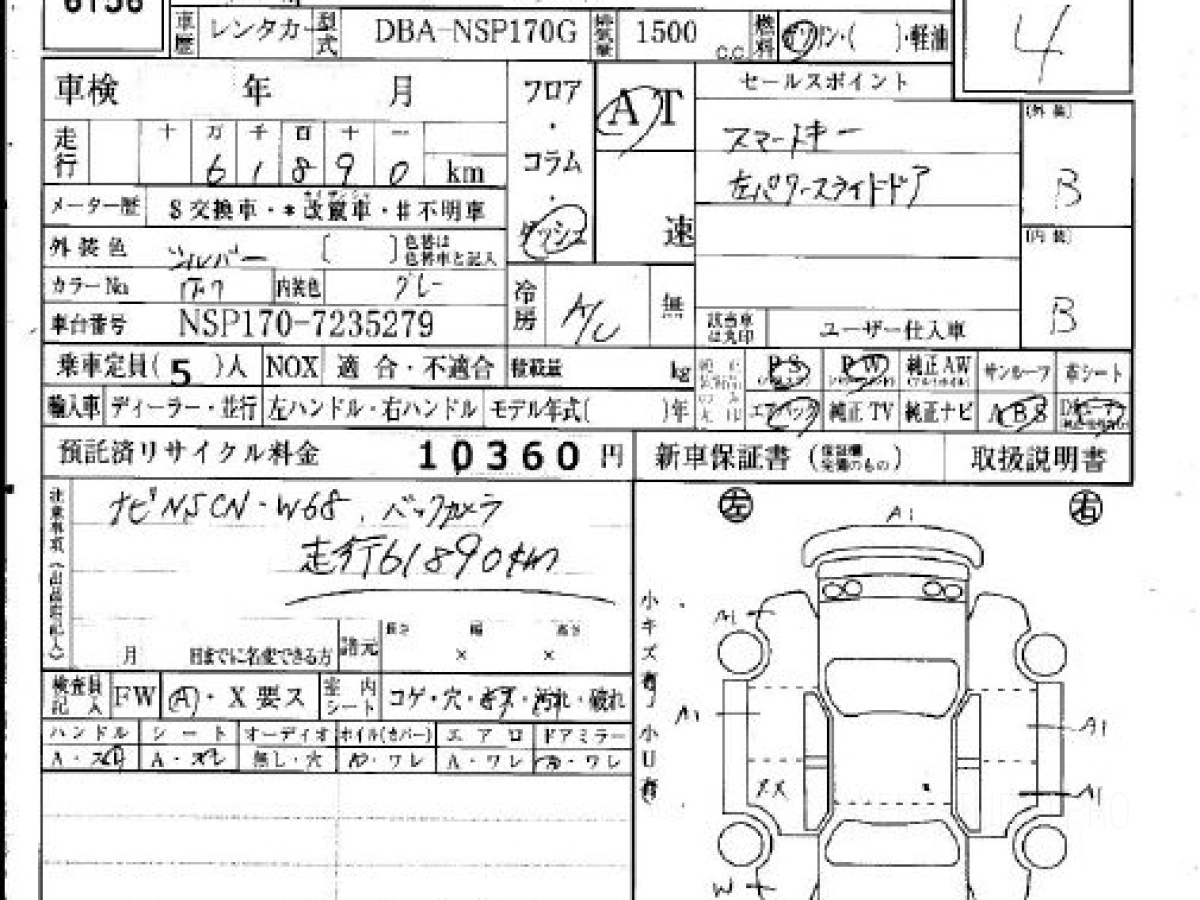 6156
車歴 レンタカー 型式 DBA-NSP170G 排気量 1500 c.c. 燃料 ガソリン・( )・軽油
4
車検 年 月
フロア・コラム・ダッシュ
AT
速
セールスポイント
スマートキー
左パワースライドドア
(外装)
B
(内装)
B
走行 十 万 千 百 十 一
6 1 8 9 0 km
メーター歴 $交換車・*改竄車・#不明車
外装色 シルバー ( ) 色替は色替車と記入
カラーNo 内装色 グレー
冷房 A/C 無
車台番号 NSP170-7235279
該当車は丸印 ユーザー仕入車
乗車定員( 5 )人 NOX 適 合・不適合 積載量 kg
PS PW 純正AW サンルーフ 革シート
輸入車 ディーラー・並行 左ハンドル・右ハンドル モデル年式( )年
エアバッグ 純正TV 純正ナビ ABS
預託済リサイクル料金 10360 円
新車保証書 (保証欄完備のもの) 取扱説明書
注意事項(出品店記入)
ナビNSCN-W68、バックカメラ
走行61890km
月 日までに名変できる方
諸元 長さ × 幅 × 高さ
検査員記入 FW A・X要ス 室内シート コゲ・穴・キズ・汚れ・破れ
ハンドル シート オーディオ ホイル(カバー) エアロ ドアミラー
A・スレ A・スレ 無し・穴 A・ワレ A・ワレ A・ワレ
左 右
A1
A1
A1
A1
A1
W
小キズ有 小U有